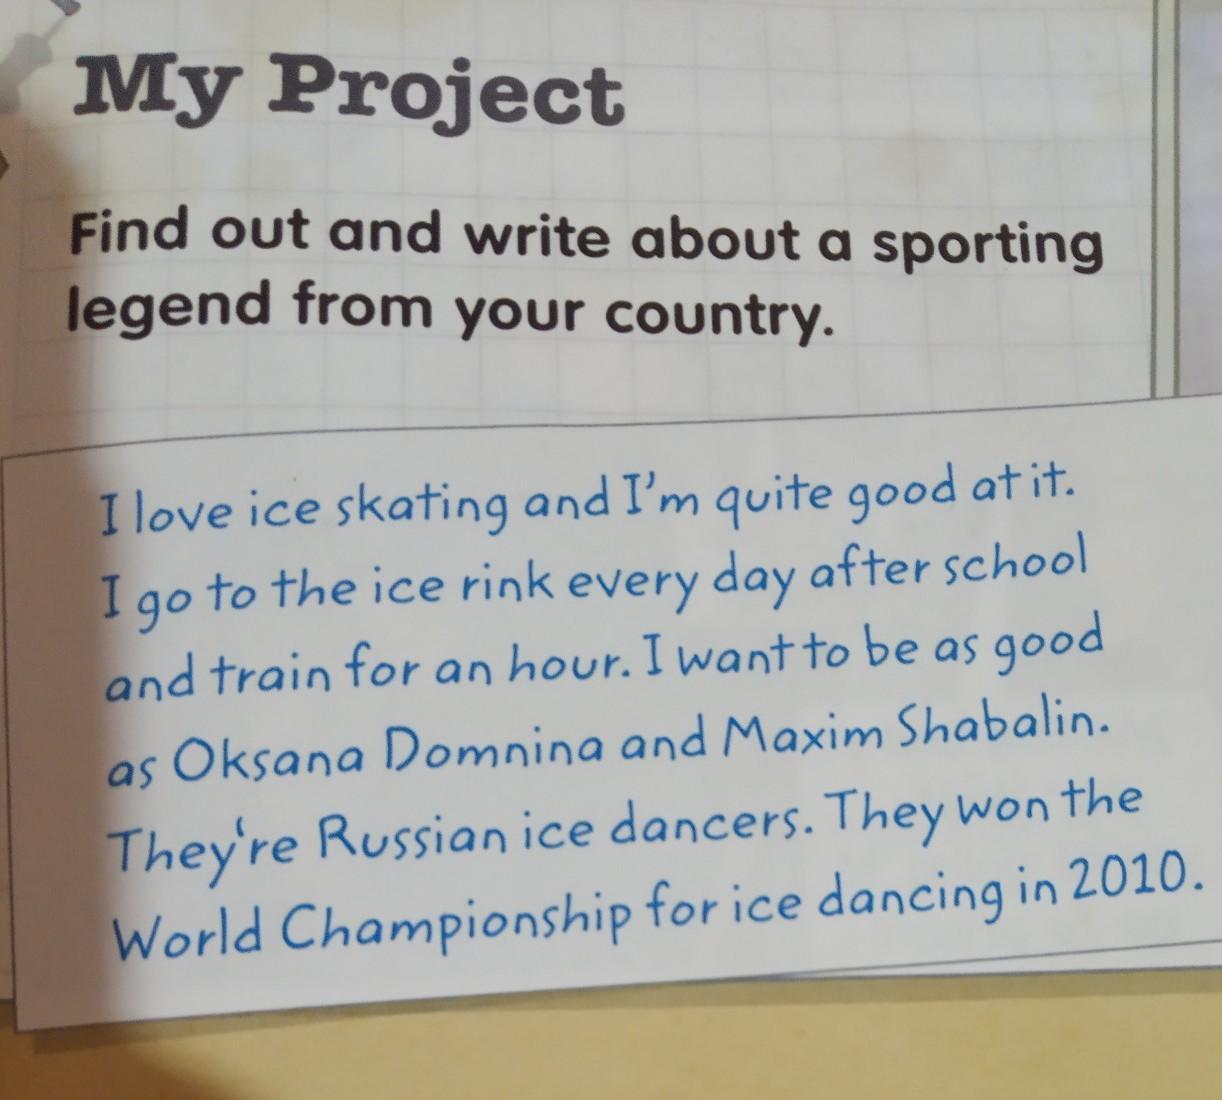 My Project
Find out and write about a sporting
legend from your country.
I love ice skating and I'm quite good at it.
I go to the ice rink every day after school
and train for an hour. I want to be as good
as Oksana Domnina and Maxim Shabalin.
They're Russian ice dancers. They won the
World Championship for ice dancing in 2010.